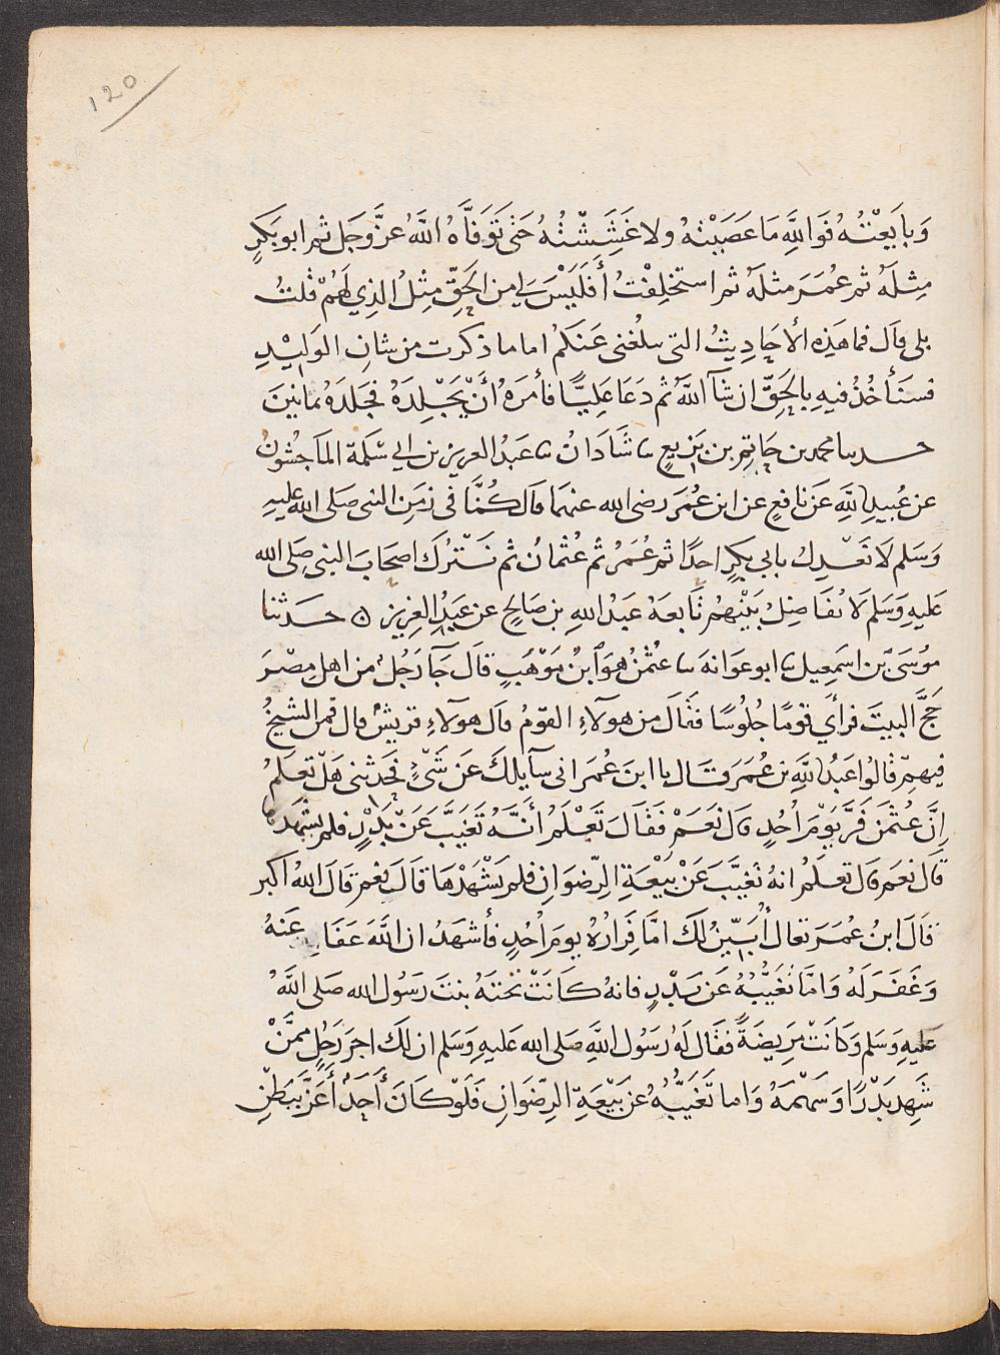 ١٢٥
وَبايَعْتُهُ فَوَاللَّهِ مَا عَصَيْتُهُ ولا غَشَشْتُهُ حَتَّى تَوَفَّاهُ اللَّهُ عزَّ وَجَل ثم ابو بَكرٍ
مِثلَهُ ثم عُمَرَ مثلَهُ ثم استخلِفْتُ أَفَلَيْسَ لي من الحَقِّ مِثلُ الذِي لَهُمْ قُلتُ
بلى قال فما هَذِه الأحَادِيثُ التى تبلُغنى عَنكُم اما ما ذكرت من شان الوَليْدِ
فسَنَأخُذُ فيهِ بالحَقِّ ان شآ اللَّهُ ثم دَعَا عَلِيًّا فأمَرَهُ أَنْ يَجْلِدَهُ فجَلَدَهُ ثمانينَ
حدثنا محمد بن حَاتِمِ بن بَزِيعٍ نا شَاذَانُ نا عَبدُ العزيز بن ابي سَلَمة المَاجِشُونُ
عن عُبيدِ اللَّهِ عَن نافعٍ عن ابن عُمَرَ رضى الله عنهما قال كُنَّا فى زمَن النبى صَلى الله عليهِ
وَسَلم لَا نَعْدِلُ بابي بكرٍ احدًا ثم عُمَرُ ثم عُثمانُ ثم نَتْرُك اصحَابَ النبى صَلى الله
عَليهِ وَسَلم لَا نُفَاضِلُ بَيْنهُم تَابعهُ عَبدُ اللهِ بن صَالحٍ عن عَبدِ العزيزِ ۞ حَدثنا
مُوسَى بن اسمَعِيل نا ابو عوَانهَ نا عثمنُ هوَ ابنُ مَوْهَبٍ قالَ جَآ رَجُلٌ من اهلِ مِصْرَ
حَجَّ البيتَ فرأَى قومًا جُلُوسًا فقَالَ من هولآءِ القَومُ قال هولآءِ قريشٌ قال فمن الشيخُ
فيهِم قالُوا عَبدُ اللَّهِ بن عُمَرَ قال يا ابنَ عُمَر انى سآيلكَ عَن شَىْءٍ فحَدثنى هَلْ تعلمُ
اِنَّ عُثمَن فَرَّ يَوْمَ اُحُدٍ قال نعَمْ فقَالَ تَعْلَمُ أنَّهُ تَغَيَّبَ عَنْ بَدْرٍ فلم يشهَدْ
قال نعم قال تعلَمُ انهُ تَغيَّبَ عَنْ بَيْعَةِ الرِّضوَانِ فلم يَشْهَدْهَا قالَ نعم قَالَ اللهُ اكبر
قالَ ابنُ عُمَرَ تعال أُبَيِّن لكَ امَّا فِرَارُهُ يومَ أُحُدٍ فأشهَدُ ان اللَّهَ عَفَا عَنهُ
وَغَفَرَ لَهُ وَامَّا تَغَيُّبُهُ عَن بَدْرٍ فانهُ كَانَتْ تحْتَهُ بنتَ رَسُول الله صَلى اللَّهُ
عَليهِ وَسَلم وَكانَتْ مَرِيضَةً فقَال لَهُ رَسُول اللَّهِ صَلى الله عَليهِ وَسَلم ان لك اجر رَجُلٍ ممَّنْ
شَهِدَ بَدْرًا وَسَهْمَهُ وَاما تَغَيُّبُهُ عن بَيْعَةِ الرِّضوَانِ فَلَوْ كَانَ أَحَدٌ أَعَزَّ بِبَطْنِ